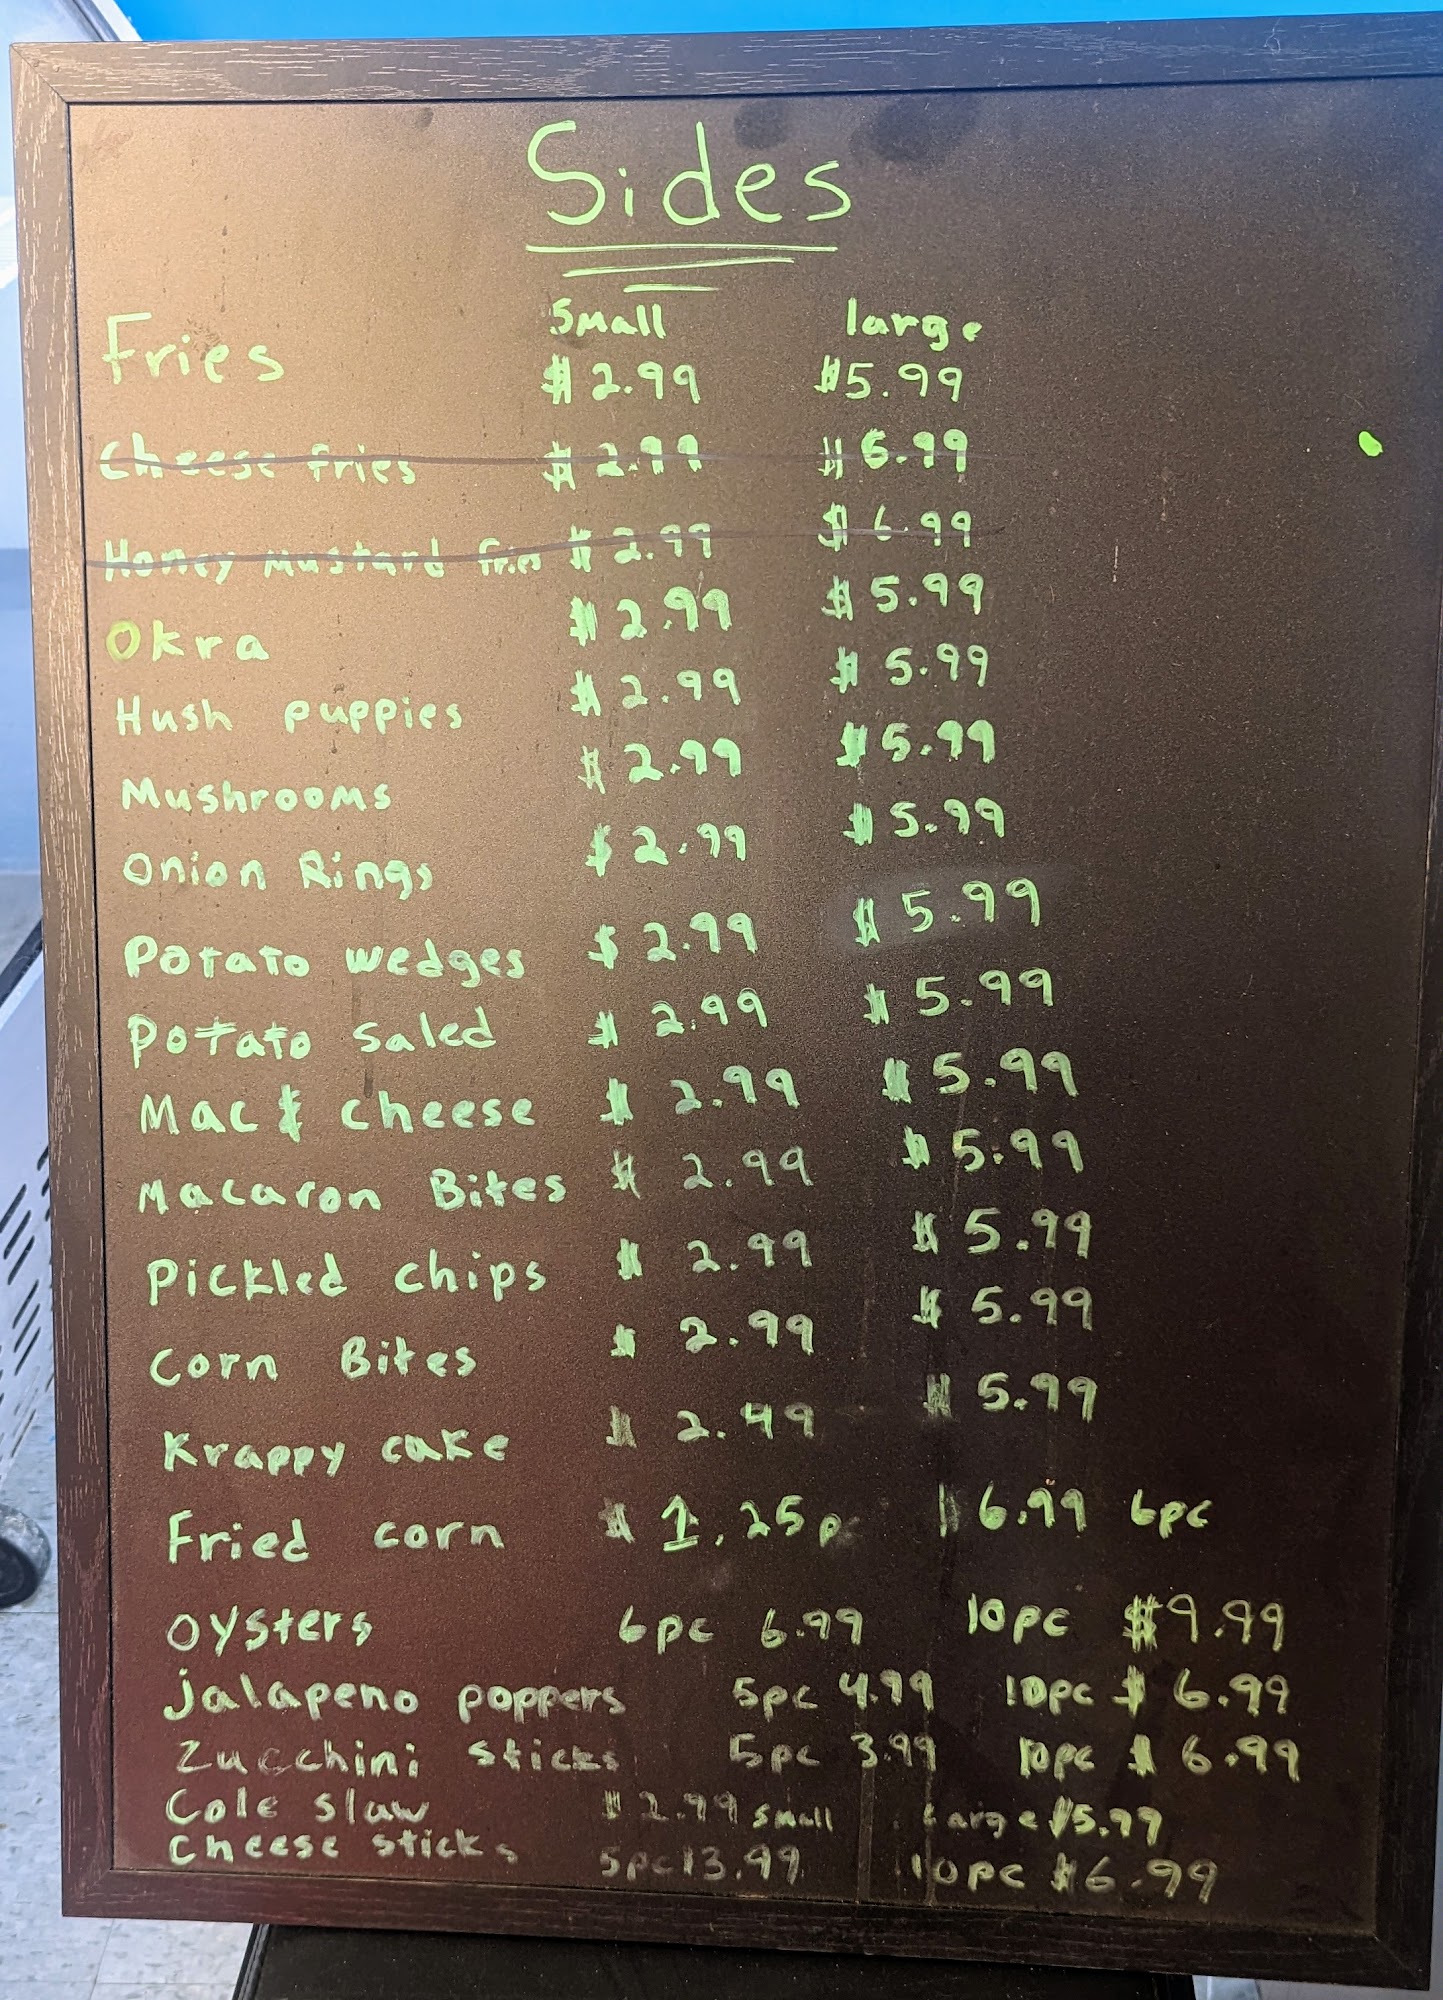 Sides
Small large
Fries $2.99 $5.99
Cheese fries $2.99 $6.99
Honey Mustard fries $2.99 $6.99
Okra $2.99 $5.99
Hush puppies $2.99 $5.99
Mushrooms $2.99 $5.99
Onion Rings $2.99 $5.99
Potato wedges $2.99 $5.99
Potato saled $2.99 $5.99
Mac & cheese $2.99 $5.99
Macaron Bites $2.99 $5.99
Pickled chips $2.99 $5.99
Corn Bites $2.99 $5.99
Krappy cake $2.49 $5.99
Fried corn $1.25p $6.99 6pc
Oysters 6pc 6.99 10pc $9.99
jalapeno poppers 5pc 4.99 10pc $6.99
Zucchini sticks 5pc 3.99 10pc $6.99
Cole slaw $2.99 small Large $5.99
Cheese sticks 5pc $3.99 10pc $6.99